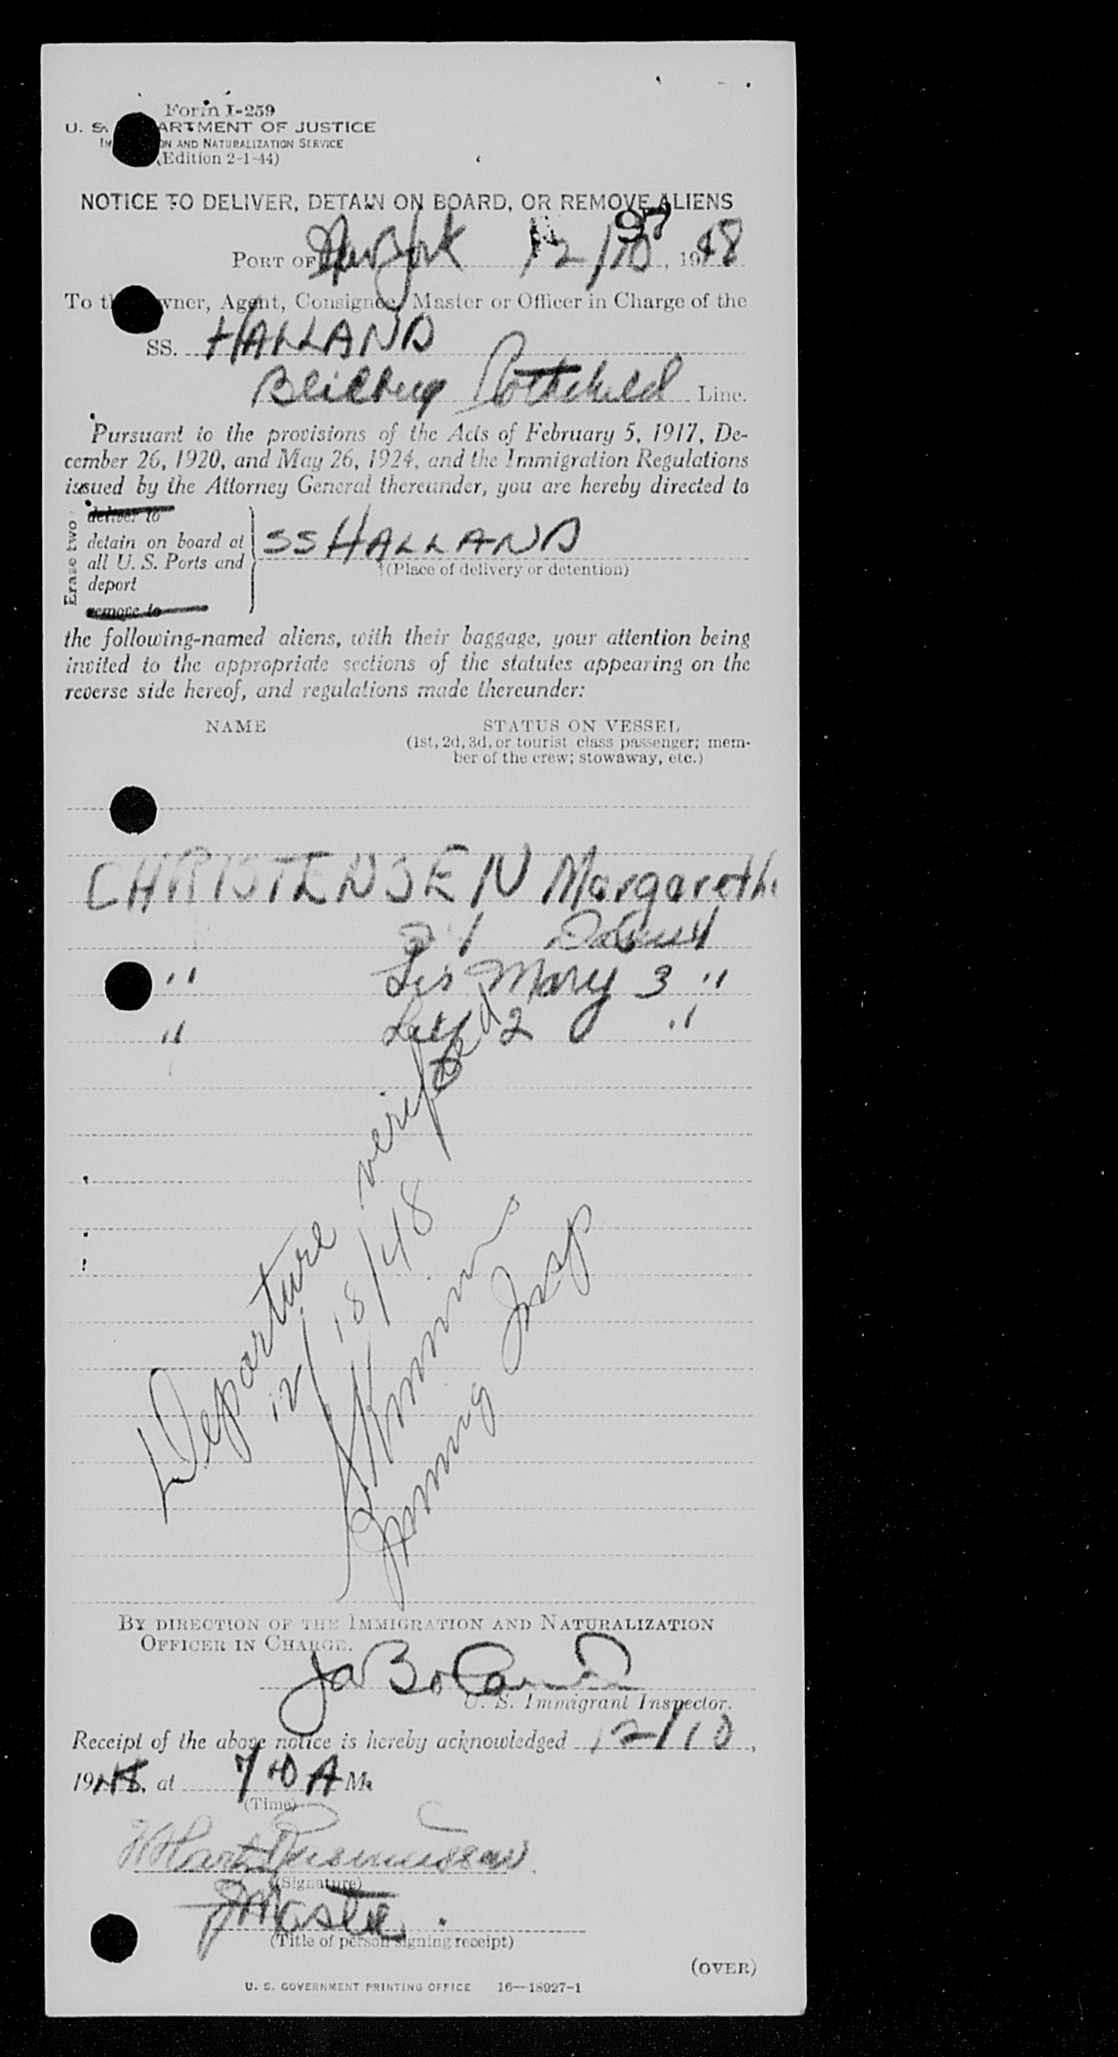 Form I-259
U. S. DEPARTMENT OF JUSTICE
IMMIGRATION AND NATURALIZATION SERVICE
(Edition 2-1-44)
NOTICE TO DELIVER, DETAIN ON BOARD, OR REMOVE ALIENS
97
PORT OF New York 12/10, 1948
To the Owner, Agent, Consignee, Master or Officer in Charge of the
SS. HALLAND
Line.
Pursuant to the provisions of the Acts of February 5, 1917, De-
cember 26, 1920, and May 26, 1924, and the Immigration Regulations
issued by the Attorney General thereunder, you are hereby directed to
Erase two
deliver to
detain on board at
all U. S. Ports and
deport
remove to
SS HALLAND
(Place of delivery or detention)
the following-named aliens, with their baggage, your attention being
invited to the appropriate sections of the statutes appearing on the
reverse side hereof, and regulations made thereunder:
NAME STATUS ON VESSEL
(1st, 2d, 3d, or tourist class passenger; mem-
ber of the crew; stowaway, etc.)
CHRISTENSEN Margarethe
" Lis Mary 3 "
" 2 "
Departure verified
12/18/48
Immig Insp
BY DIRECTION OF THE IMMIGRATION AND NATURALIZATION
OFFICER IN CHARGE.
U. S. Immigrant Inspector.
Receipt of the above notice is hereby acknowledged 12/10,
1948, at 7 10 A M.
(Time)
Rasmussen
(Signature)
Master
(Title of person signing receipt)
(OVER)
U. S. GOVERNMENT PRINTING OFFICE 16—18027-1